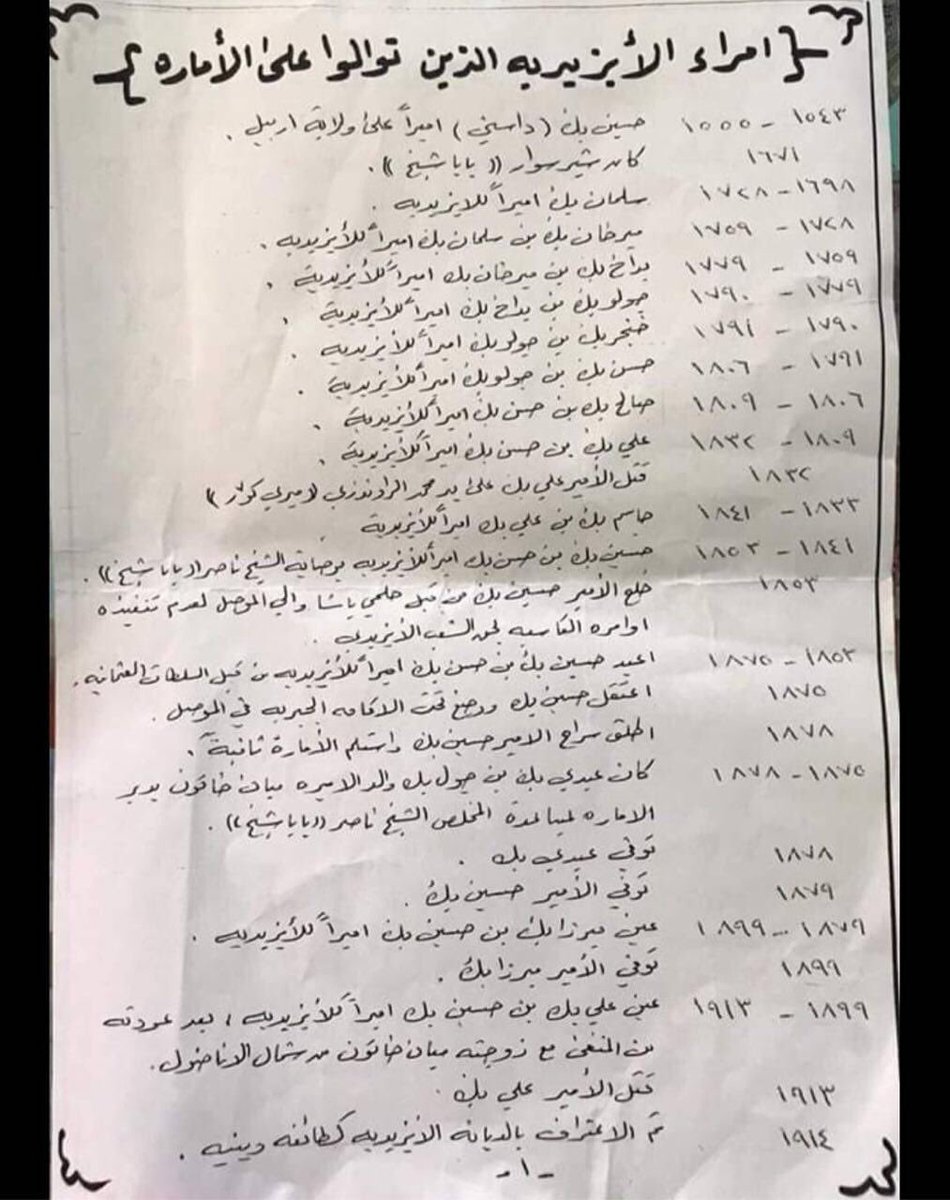 { امراء الأيزيديه الذين توالوا على الأماره }
١٥٤٣ - ١٥٥٥ حسين بك ( داسني ) اميراً على ولاية اربيل .
١٦٧١ كان شير سوار (( بابا شيخ )) .
١٦٩٨ - ١٧٢٨ سلمان بك اميراً للايزيديه .
١٧٢٨ - ١٧٥٩ ميرخان بك بن سلمان بك اميراً للأيزيديه .
١٧٥٩ - ١٧٧٩ بداخ بك بن ميرخان بك اميراً للأيزيدية .
١٧٧٩ - ١٧٩٠ جولو بك بن بداخ بك اميراً للأيزيدية .
١٧٩٠ - ١٧٩١ خنجر بك بن جولو بك اميراً للأيزيديه .
١٧٩١ - ١٨٠٦ حسن بك بن جولو بك اميراً للأيزيدية .
١٨٠٦ - ١٨٠٩ صالح بك بن حسن بك اميراً للأيزيدية .
١٨٠٩ - ١٨٣٢ علي بك بن حسن بك اميراً للأيزيدية .
١٨٣٢ قتل الأمير علي بك على يد محمد الراوندزي ( ميري كور )
١٨٣٣ - ١٨٤١ جاسم بك بن علي بك اميراً للأيزيدية
١٨٤١ - ١٨٥٣ حسين بك بن حسن بك اميراً للأيزيديه بوصاية الشيخ ناصر (( بابا شيخ )) .
١٨٥٣ خلع الأمير حسين بك من قبل حلمي باشا والي الموصل لعدم تنفيذه
اوامره القاسيه لحق الشعب الأيزيدي .
١٨٥٣ - ١٨٧٥ اعيد حسين بك بن حسن بك اميراً للأيزيديه من قبل السلطات العثمانيه .
١٨٧٥ اعتقل حسين بك ووضع تحت الاقامه الجبريه في الموصل .
١٨٧٨ اطلق سراح الامير حسين بك واستلم الأمارة ثانيةً .
١٨٧٥ - ١٨٧٨ كان عبدي بك بن جول بك والد الاميره ميان خاتون يدير
الاماره لمساعدة المخلص الشيخ ناصر (( بابا شيخ )) .
١٨٧٨ توفي عبدي بك .
١٨٧٩ توفي الأمير حسين بك .
١٨٧٩ - ١٨٩٩ عين ميرزا بك بن حسين بك اميراً للأيزيديه .
١٨٩٩ توفي الأمير ميرزا بك .
١٨٩٩ - ١٩١٣ عين علي بك بن حسين بك اميراً للأيزيديه ، بعد عودته
من المنفى مع زوجته ميان خاتون من شمال الاناضول .
١٩١٣ قتل الأمير علي بك .
١٩١٤ تم الاعتراف بالديانه الايزيديه كطائفه دينيه .
- ١ -